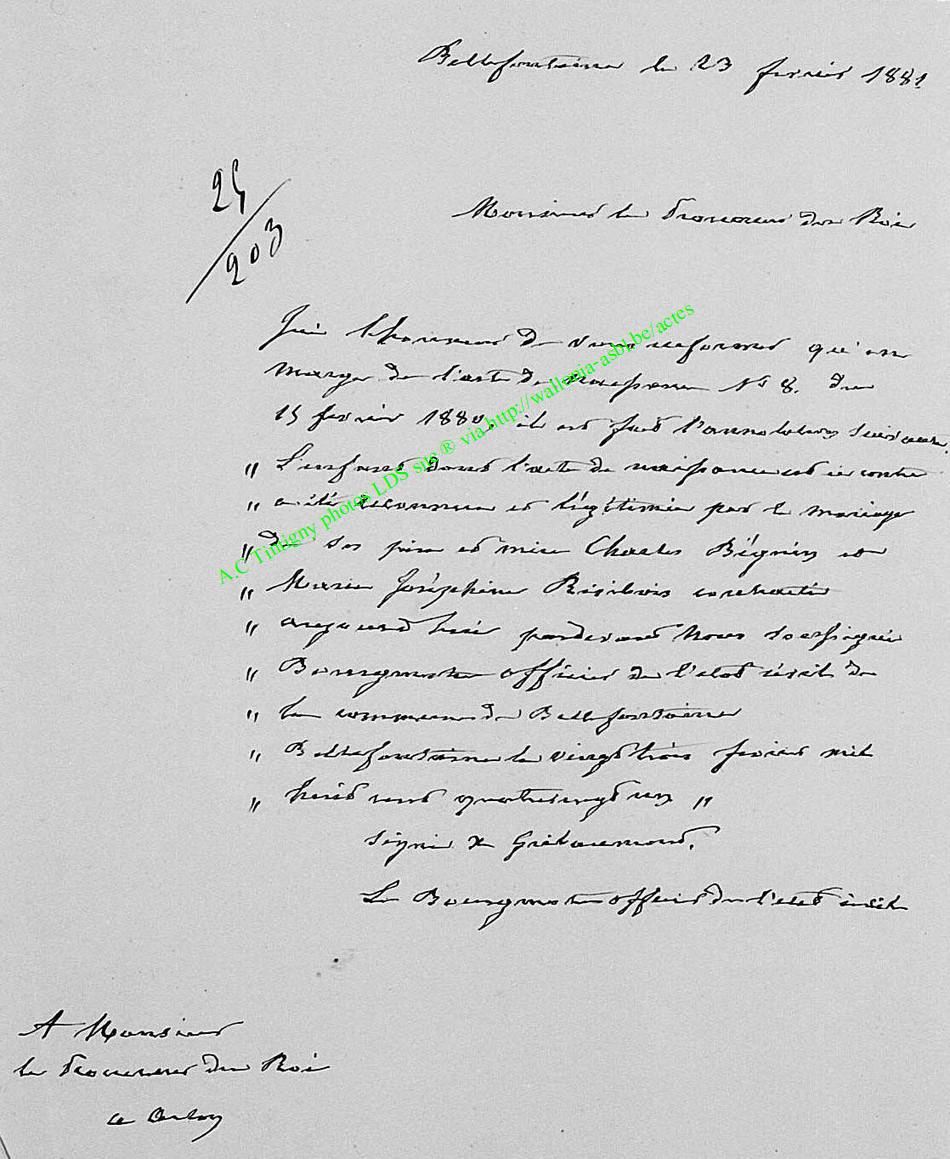 Bellefontaine le 23 fevrier 1881
25/203
Monsieur le Procureur du Roi
J'ai l'honneur de vous informer qu'en
marge de l'acte de naissance No 8. du
15 fevrier 1880, il est fait l'annotation suivante.
" L'enfant dont l'acte de naissance est ci contre
" a été reconnu et légitimé par le mariage
" de ses père et mère Charles Bégnin et
" Marie Joséphine Risibois contracté
" aujourd'hui pardevant Nous soussigné
" Bourgmestre officier de l'etat civil de
" la commune de Bellefontaine
" Bellefontaine le vingt trois fevrier mil
" huit cent quatrevingt un "
signé
Le Bourgmestre officier de l'etat civil
A Monsieur
le Procureur du Roi
a Arlon
A.C Tintigny photos LDS site ® via http://wallonia-asbl.be/actes